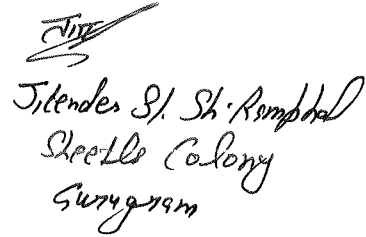 Jitender S/. Sh. Ramphal
Sheetla Colony
Gurugram